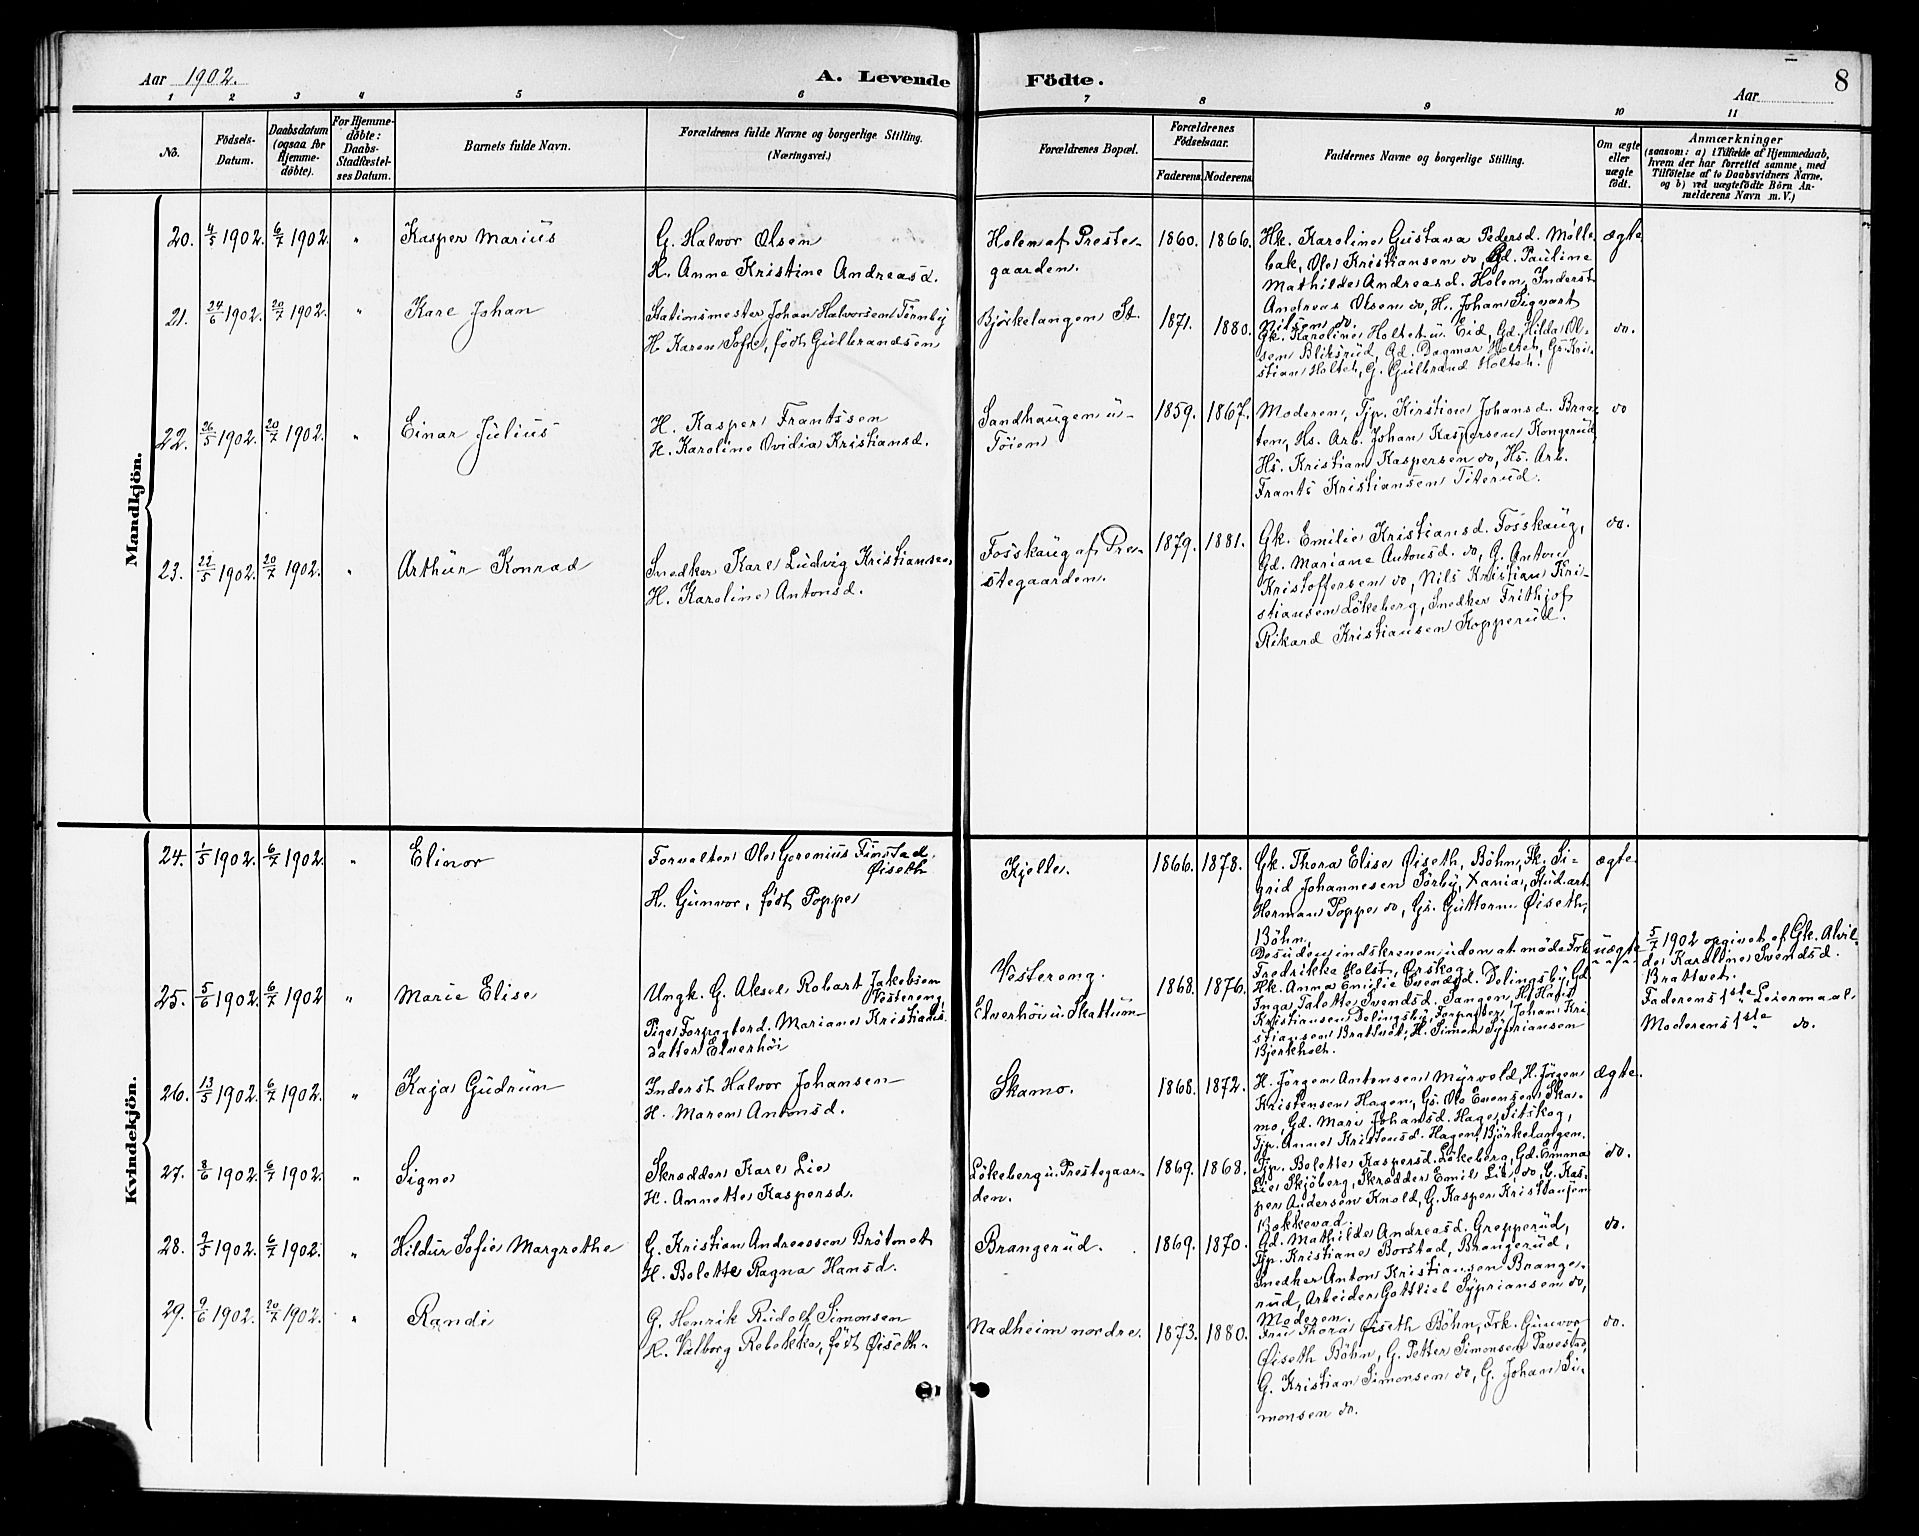 Aar 1902.
A. Levende Födte.
Aar
8
1 2 3 4 5 6 7 8 9 10 11
No.
Födsels-
Datum.
Daabsdatum
(ogsaa for
Hjemme-
döbte).
For Hjemme-
döbte:
Daabs-
Stadfæstel-
ses Datum.
Barnets fulde Navn.
Forældrenes fulde Navne og borgerlige Stilling.
(Næringsvei.)
Forældrenes Bopæl.
Forældrenes
Födselsaar.
Faderens. Moderens.
Faddernes Navne og borgerlige Stilling.
Om ægte
eller
uægte
födt.
Anmærkninger
(saasom: a) i Tilfælde af Hjemmedaab,
hvem der har forrettet samme, med
Tilföielse af to Daabsvidners Navne.
og b) ved uægtefödte Börn An-
melderens Navn m. V.)
Mandkjön.
20. 4/5 1902. 6/7 1902. " Kasper Marius
G. Halvor Olsen
H. Anne Kristine Andreasd.
Holen af Preste-
gaarden.
1860. 1866.
Hk. Karoline Gustava Pedersd. Mölle-
bak, Ole Kristiansen do, Gd. Pauline
Mathilde Andreasd. Holen, Inderst
Andreas Olsen do, H. Johan Sigvart
Nilsen do.
ægte
21. 24/6 1902. 20/7 1902. " Kare Johan
Stationsmester Johan Halvorsen Törnby
H. Karen Sofie, födt Gulbrandsen
Björkelangen St.
1871. 1880.
Gk. Karoline Holtet u. Eid, Gd. Hilda Ol-
sen Bliksrud, Gd. Dagmar Holtet, Gs. Kri-
stian Holtet, G. Gulbrand Holtet.
do.
22. 26/5 1902. 20/7 1902. " Einar Julius
H. Kasper Frantssen
H. Karoline Ovidia Kristiansd.
Sandhaugen u-
Töien
1859. 1867.
Moderen, Tjp. Kirstine Johansd. Braa-
ten, Hs. Arb. Johan Kaspersen Kongerud,
Hs. Kristian Kaspersen do, Hs. Arb.
Frants Kristiansen Titerud.
do
23. 22/5 1902. 20/7 1902. " Arthur Konrad
Snedker Karl Ludvig Kristiansen
H. Karoline Antonsd.
Fosskaug af Pre-
stegaarden.
1879. 1881.
Gk. Emilie Kristiansd. Fosskaug,
Gd. Mariane Antonsd. do, G. Anton
Kristoffersen do, Nils Kristian Kri-
stiansen Lökeberg, Snedker Frithjof
Rikard Kristiansen Kopperud.
do.
Kvindekjön.
24. 1/5 1902. 6/7 1902. " Elinor
Forvalter Ole Goremius Finstad
Öiseth
H. Gunvor, födt Poppe
Kjelle.
1866. 1878.
Gk. Thora Elise Öiseth, Böhn, Fk. Si-
grid Johannesen Sörby, Xania, Stud. art.
Herman Poppe do, Gs. Guttorm Öiseth,
Böhn,
Desuden indskreven uden at möde Frk.
Fredrikke Holst, Örskog.
ægte
25. 5/6 1902. 6/7 1902 " Marie Elise
Ungk. G. Aksel Robart Jakobsen
Vestereng,
Pige Forpagterd. Mariane Kristians-
datter Elverhöi
Vestereng.
Elverhöi u. Skattum
1868. 1876.
Hk. Anna Emilie Svendsd. Delingsby, Gd.
Inga Talotte Svendsd. Tangen, H. Hans
Kristiansen Delingsby, Forpagter Johan Kri-
stiansen Brattvet, H. Simon Sypriansen
Bjerkholt.
uægte
5/7 1902 opgivet af Gk. Alvil-
de Karoline Svendsd.
Brattvet.
Faderens 1ste Leiermaal.
Moderens 1ste do.
26. 13/5 1902. 6/7 1902. " Kaja Gudrun
Inderst Halvor Johansen
H. Maren Antonsd.
Skamo.
1868. 1872.
H. Jörgen Antonsen Myrvold, H. Jörgen
Kristensen Hagen, Gs. Ole Evensen Ska-
mo, Gd. Mari Johansd. Hage, Sitskog,
Tjp. Anne Kristensd. Hagen, Björkelangen.
ægte.
27. 8/6 1902. 6/7 1902. " Signe
Skrædder Karl Lie
H. Annette Kaspersd.
Lökeberg u. Prestegaar-
den.
1869. 1868.
Tjp. Bolette Kaspersd. Lökeberg, Gd. Emma
Lie Skjöberg, Skrædder Emil Lie, do, G. Kas-
per Andersen Knold, G. Kasper Kristiansen
Bakkevad.
do.
28. 9/5 1902. 6/7 1902. " Hildur Sofie Margrethe
G. Kristian Andreassen Brötmet
H. Bolette Ragna Hansd.
Brangerud.
1869. 1870.
Gd. Mathilde Andreasd. Gropperud,
Tjp. Kristiane Borstad, Brangerud,
Snedker Anton Kristiansen Brange-
rud, Arbeider Gottlieb Sypriansen do,
Moderen.
do.
29. 9/6 1902. 20/7 1902. " Randi
G. Henrik Rudolf Simonsen
H. Valborg Rebekka, födt Öiseth.
Nadheim nordre.
1873. 1880.
Fru Thora Öiseth Böhn, Frk. Gunvor
Öiseth Böhn, G. Petter Simonsen Tavestad,
G. Kristian Simonsen do, G. Johan Si-
monsen do.
do.